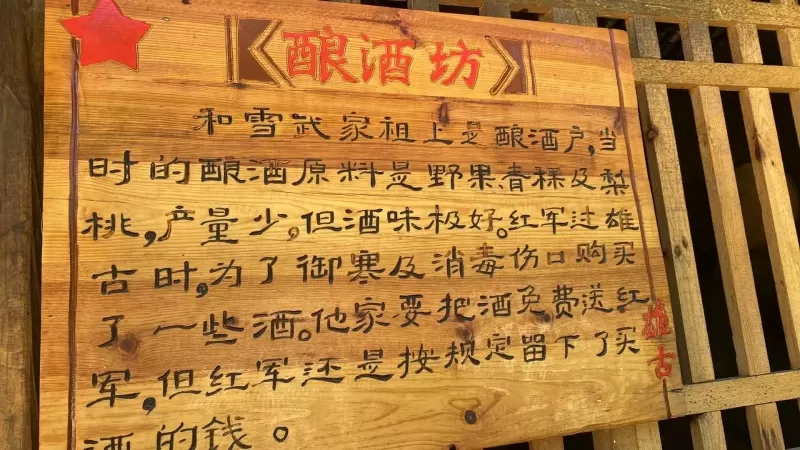 酿酒坊
和雪武家祖上是酿酒户,当
时的酿酒原料是野果青稞及梨
桃,产量少,但酒味极好。红军过雄
古时,为了御寒及消毒伤口购买
了一些酒。他家要把酒免费送红
军,但红军还是按规定留下了买
酒的钱。
雄古